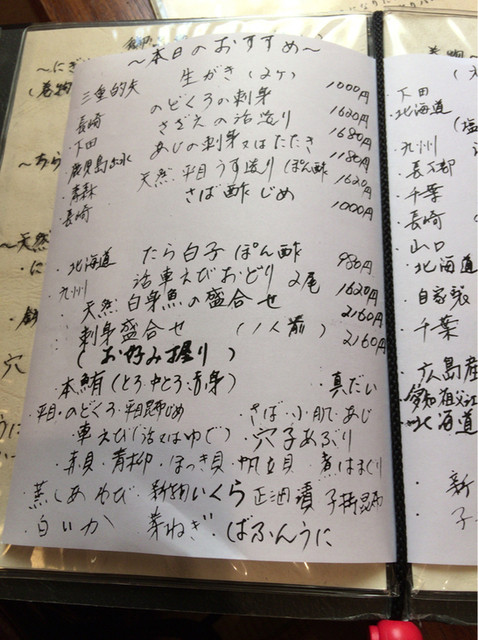 ～本日のおすすめ～
三重的矢 生がき(2ケ) 1000円
長崎 のどくろの刺身 1620円
下田 さざえの活造り 1680円
鹿児島出水 あじの刺身又はたたき 1180円
青森 天然平目うす造り ぽん酢 1620円
長崎 さば酢じめ 1000円
・北海道 たら白子ぽん酢 980円
九州 活車えびおどり 2尾 1620円
・天然白身魚の盛合せ 2160円
・刺身盛合せ (1人前) 2160円
(お好み握り)
・本鮪(とろ・中とろ・赤身) ・真だい
・平目・のどくろ・平目昆布じめ ・さば・小肌・あじ
・車えび(活又はゆで)・穴子あぶり
・赤貝・青柳・ほっき貝・帆立貝・煮はまぐり
・蒸しあわび・新物いくら正油漬 子持昆布
・白いか 芽ねぎ・ばふんうに
・下田
・北海道
・九州
・千葉
・長崎
・山口
・北海道
・自家製
・千葉
・広島産
・北海道
・新
・子